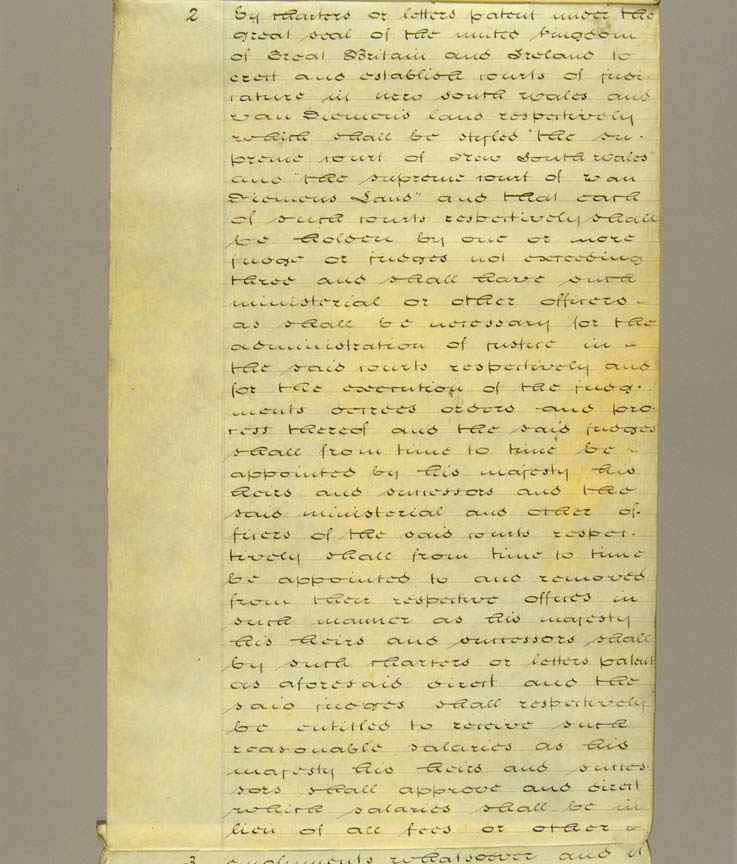 2
by charters or letters patent under the
great seal of the united kingdom
of Great Britain and Ireland to
erect and establish courts of judi-
cature in new south wales and
van Diemen's land respectively
which shall be styled "the su-
preme court of New South wales"
and "the supreme court of van
Diemens Land" and that each
of such courts respectively shall
be holden by one or more
judge or judges not exceeding
three and shall have such
ministerial or other officers -
as shall be necessary for the
administration of justice in -
the said courts respectively and
for the execution of the judg-
ments decrees orders and pro-
cess thereof and the said judges
shall from time to time be -
appointed by his majesty his
heirs and successors and the
said ministerial and other of-
ficers of the said courts respec-
tively shall from time to time
be appointed to and removed
from their respective offices in
such manner as his majesty
his heirs and successors shall
by such charters or letters patent
as aforesaid direct and the
said judges shall respectively
be entitled to receive such
reasonable salaries as his
majesty his heirs and succes-
sors shall approve and direct
which salaries shall be in
lieu of all fees or other -
3
emoluments whatsoever and it